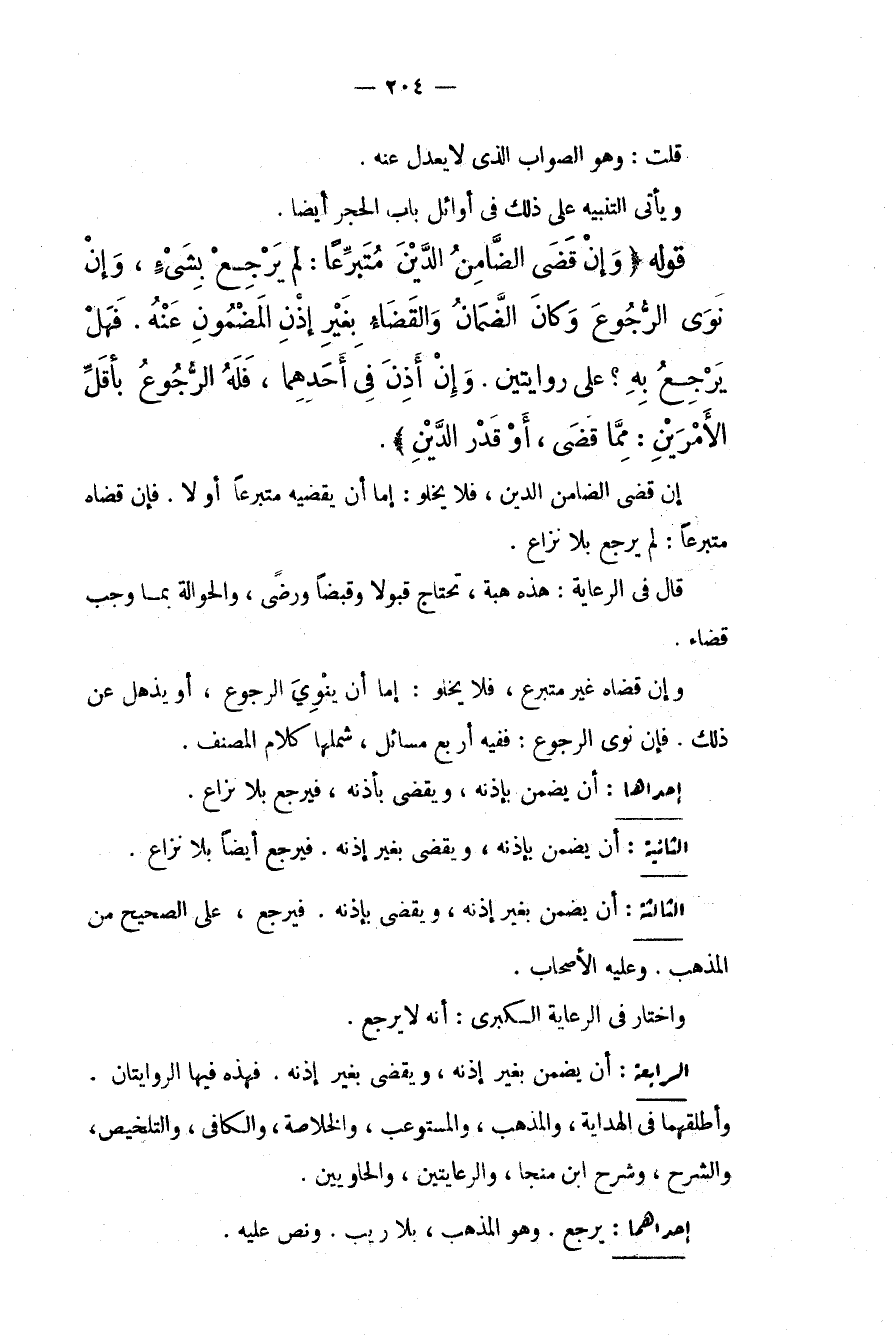 — ٢٠٤ —
قلت : وهو الصواب الذى لا يعدل عنه .
ويأتى التنبيه على ذلك فى أوائل باب الحجر أيضا .
قوله ﴿ وَإِنْ قَضَى الضَّامِنُ الدَّيْنَ مُتَبَرِّعًا : لَمْ يَرْجِعْ بِشَىْءٍ ، وَإِنْ
نَوَى الرُّجُوعَ وَكَانَ الضَّمَانُ وَالقَضَاءِ بِغَيْرِ إِذْنِ المَضْمُونِ عَنْهُ . فَهَلْ
يَرْجِعُ بِهِ ؟ على روايتين . وَإِنْ أَذِنَ فِى أَحَدِهِما ، فَلَهُ الرُّجُوعُ بأَقَلِّ
الأَمْرَيْنِ : مِمَّا قَضَى ، أَوْ قَدْر الدَّيْنِ ﴾ .
إن قضى الضامن الدين ، فلا يخلو : إما أن يقضيه متبرعاً أو لا . فإن قضاه
متبرعاً : لم يرجع بلا نزاع .
قال فى الرعاية : هذه هبة ، تحتاج قبولا وقبضاً ورضًى ، والحوالة بما وجب
قضاء .
وإن قضاه غير متبرع ، فلا يخلو : إما أن ينْوِيَ الرجوع ، أو يذهل عن
ذلك . فإن نوى الرجوع : ففيه أربع مسائل ، شملها كلام المصنف .
إحداها : أن يضمن بإذنه ، ويقضى بأذنه ، فيرجع بلا نزاع .
الثانية : أن يضمن بإذنه ، ويقضى بغير إذنه . فيرجع أيضاً بلا نزاع .
الثالثة : أن يضمن بغير إذنه ، ويقضى بإذنه . فيرجع ، على الصحيح من
المذهب . وعليه الأصحاب .
واختار فى الرعاية الكبرى : أنه لا يرجع .
الرابعة : أن يضمن بغير إذنه ، ويقضى بغير إذنه . فهذه فيها الروايتان .
وأطلقهما فى الهداية ، والمذهب ، والمستوعب ، والخلاصة ، والكافى ، والتلخيص ،
والشرح ، وشرح ابن منجا ، والرعايتين ، والحاويين .
إحداهما : يرجع . وهو المذهب ، بلا ريب . ونص عليه .